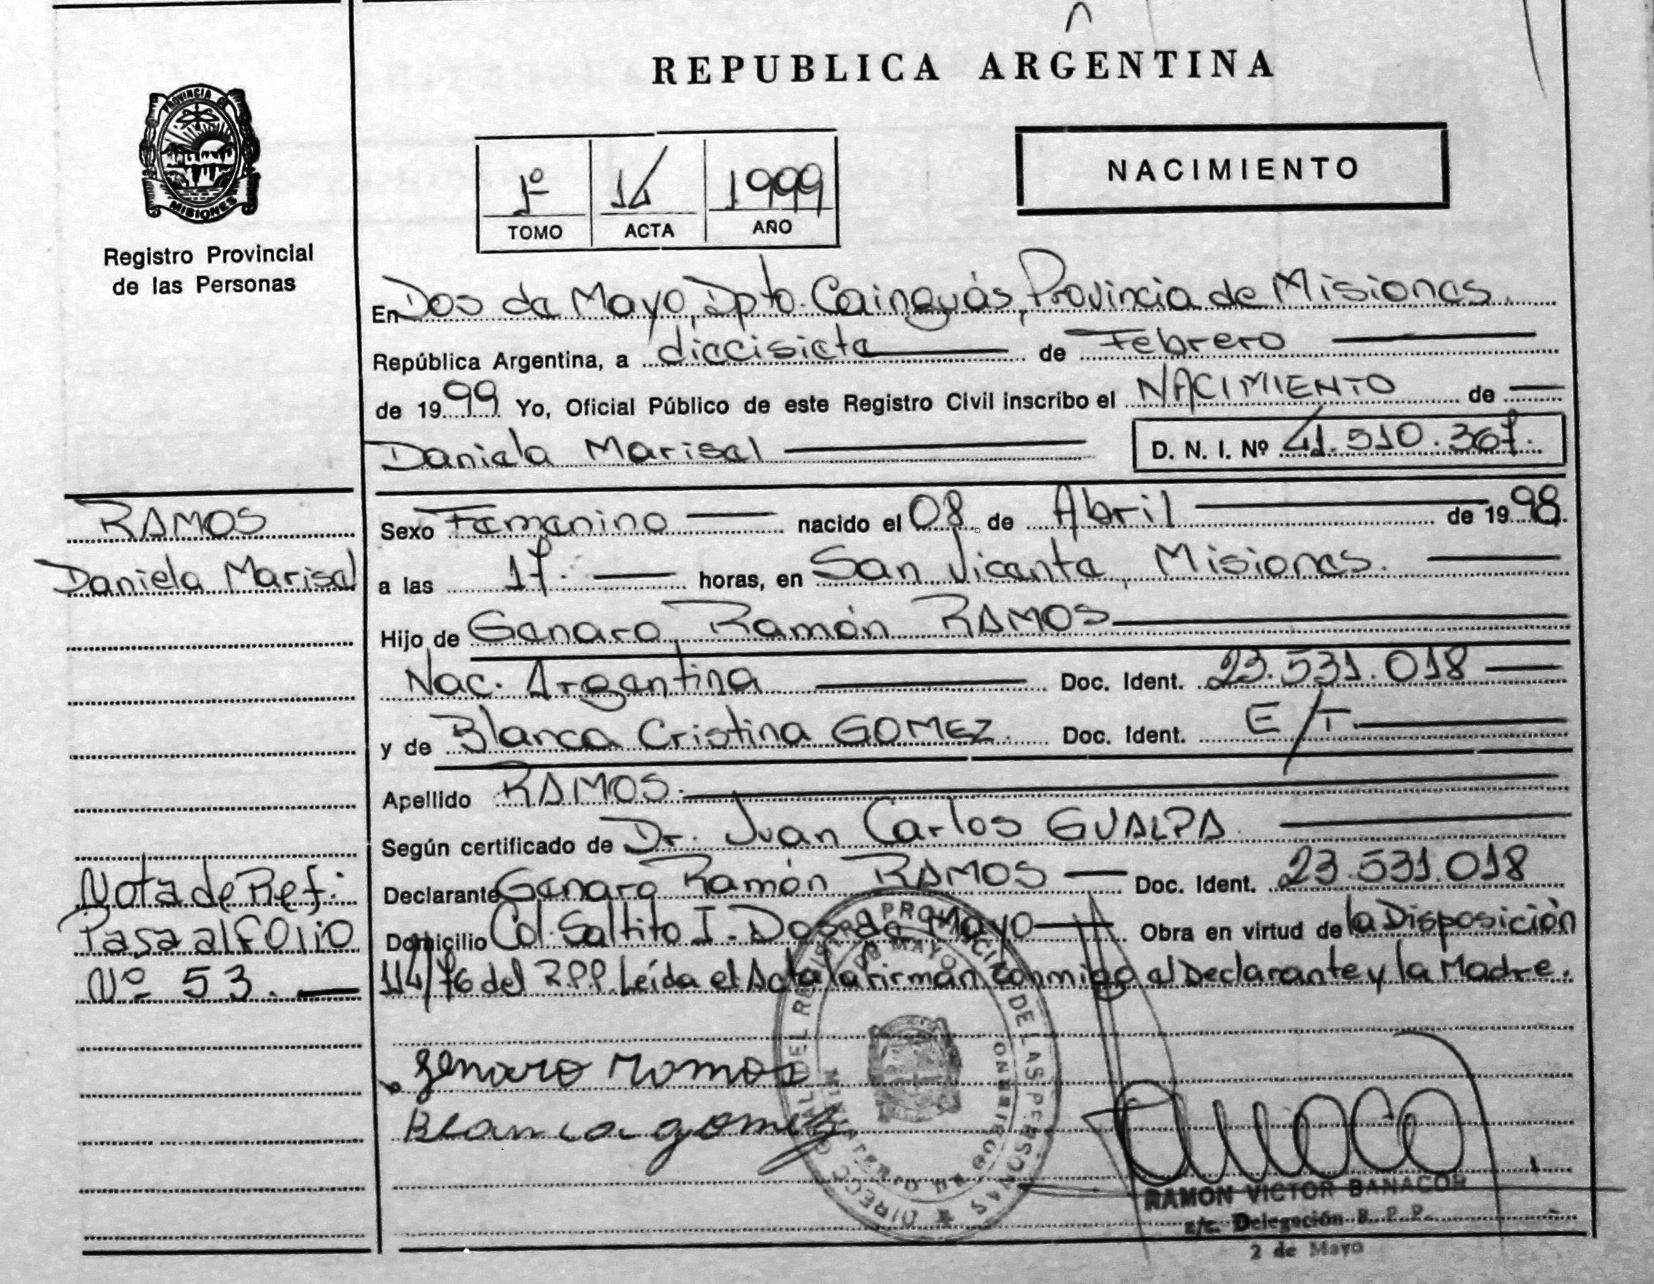 REPUBLICA ARGENTINA
PROVINCIA DE
MISIONES
Registro Provincial
de las Personas
1º 14 1999
TOMO ACTA AÑO
NACIMIENTO
En Dos de Mayo, Dpto. Cainguás, Provincia de Misiones.
República Argentina, a diecisiete de Febrero
de 1999 Yo, Oficial Público de este Registro Civil inscribo el NACIMIENTO de
Daniela Marisel D. N. I. Nº 41.510.367.
RAMOS
Daniela Marisel
Sexo Femenino nacido el 08 de Abril de 1998.
a las 17. horas, en San Vicente, Misiones.
Hijo de Genaro Ramón RAMOS
Nac. Argentina Doc. Ident. 23.531.018
y de Blanca Cristina GOMEZ. Doc. Ident. E/T.
Apellido RAMOS.
Según certificado de Dr. Juan Carlos GUALPA.
Declarante Genaro Ramón RAMOS Doc. Ident. 23.531.018
Domicilio Col. Saltito I. Dos de Mayo Obra en virtud de la Disposición
114/76 del R.P.P. Leída el Acta la firmán conmigo el Declarante y la Madre.
Nota de Ref:
Pasa al FOLIO
Nº 53.
genaro ramos
Blanca gomez
RAMON VICTOR BANACOR
a/c. Delegación R. P. P.
2 de Mayo